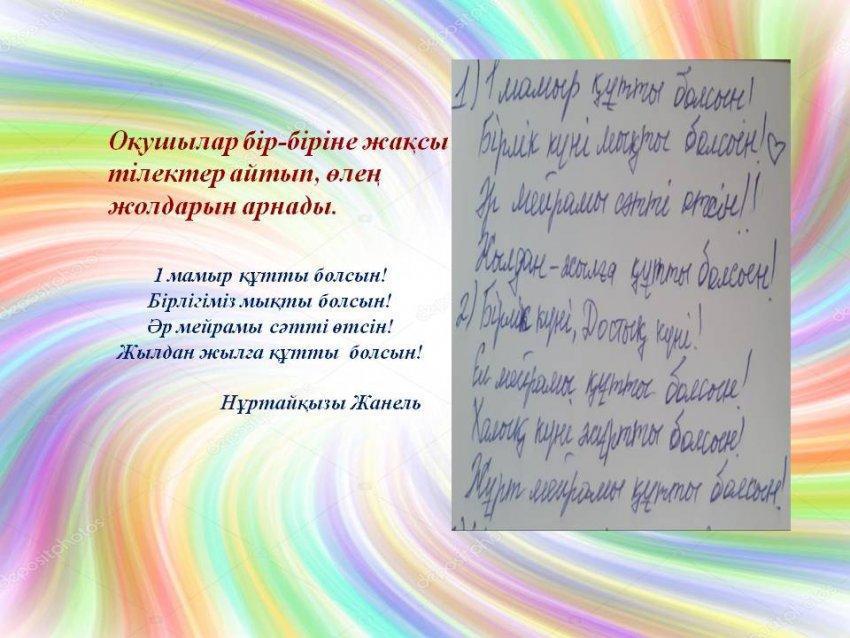 Оқушылар бір-біріне жақсы
тілектер айтып, өлең
жолдарын арнады.
1 мамыр құтты болсын!
Бірлігіміз мықты болсын!
Әр мейрамы сәтті өтсін!
Жылдан жылға құтты болсын!
Нұртайқызы Жанель
1) 1 мамыр құтты болсын!
Бірлік күні мықты болсын!
Әр мейрамы сәтті өтсін!!
Жылдан-жылға құтты болсын!
2) Бірлік күні, Достық күні!
Ел мейрамы құтты болсын!
Халық күні болсын!
Жұрт мейрамы құтты болсын!
depositphotos
depositphotos
depositphotos
depositphotos